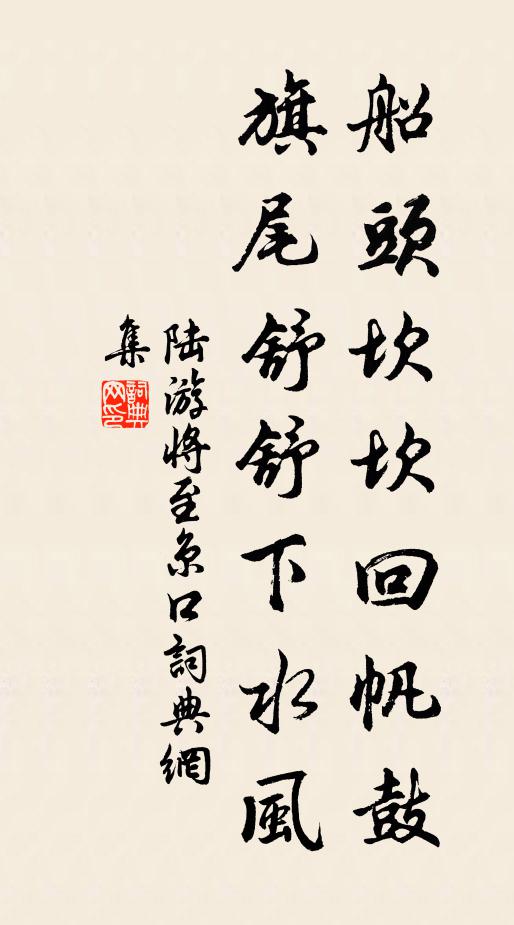 船頭坎坎回帆鼓
旗尾舒舒下水風
陆游將至京口詞典網
集
詞典网印